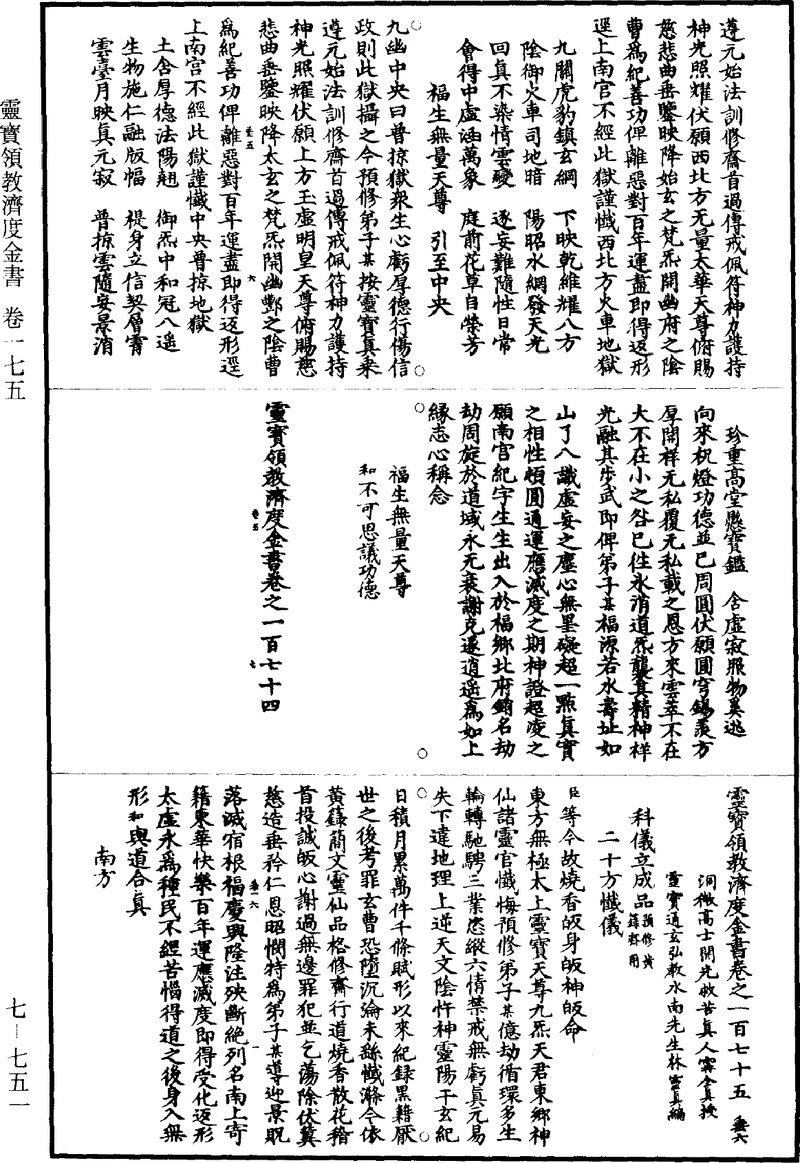 遵元始法訓修齋首過傳戒佩符神力護持
神光照耀伏願西北方无量太華天尊俯賜
慈悲曲垂鑒映降始玄之梵炁開幽府之陰
曹為紀善功俾離惡對百年運盡即得返形
逕上南宮不經此獄謹懺西北方火車地獄
九關虎豹鎮玄綱　下映乾維耀八方
陰御火車司地暗　陽昭水網發天光
回真不染情雲變　逐妄難隨性日常
會得中虛涵萬象　庭前花草自榮芳
福生無量天尊　引至中央
九幽中央曰普掠獄衆生心虧厚德行傷信
政則此獄攝之今預修弟子某按靈寶真乘
遵元始法訓修齋首過傳戒佩符神力護持
神光照耀伏願上方玉虛明皇天尊俯賜慈
悲曲垂鑒映降太玄之梵炁開幽酆之陰曹
為紀善功俾離惡對百年運盡即得返形逕
上南宮不經此獄謹懺中央普掠地獄
土含厚德法陽翘　御炁中和冠八遥
生物施仁融版幅　禔身立信契層霄
雲臺月映真元寂　普掠雲隨妄景消
珍重高堂懸寶鑑　含虛寂照物莫逃
向來祝燈功德並已周圓伏願圓穹錫羨方
厚開祥无私覆无私載之恩方來雲萃不在
大不在小之咎已往氷消道炁襲其精神祥
光融其步武即俾弟子某福源若水壽址如
山了八識虛妄之塵心無罣礙超一點真實
之相性頓圓通運應滅度之期神證超凌之
願南宮紀字生生出入於福鄉北府銷名劫
劫周旋於道域永无衰謝克遂逍遥為如上
緣志心稱念
福生無量天尊
和不可思議功德
靈寶領教濟度金書卷之一百七十四
靈寶領教濟度金書卷之一百七十五　垂六
洞微高士開光救苦真人甯全真授
靈寶通玄弘教水南先生林靈真編
科儀立成品預修黃籙齋用
二十方懺儀
臣等今故燒香皈身皈神皈命
東方無極太上靈寶天尊九炁天君東鄉神
仙諸靈官懺悔預修弟子某億劫循環多生
輪轉馳騁三業恣縱六情禁戒無虧真元易
失下違地理上逆天文陰忤神靈陽干玄紀
日積月累萬件千條賦形以來紀錄黑籍厭
世之後考罪玄曹恐墮沉淪未繇懺滌今依
黃籙簡文靈仙品格修齋行道燒香散花稽
首投誠皈心謝過無邊罪犯並乞蕩除伏冀
慈造垂矜仁恩昭憫特為弟子某導迎景貺
落滅宿根福慶興隆注殃斷絕列名南上寄
籍東華快樂百年運應滅度即得受化返形
太虛永為種民不經苦惱得道之後身入無
形和與道合真
南方
靈寶領教濟度金書　卷一七五
七－七五一